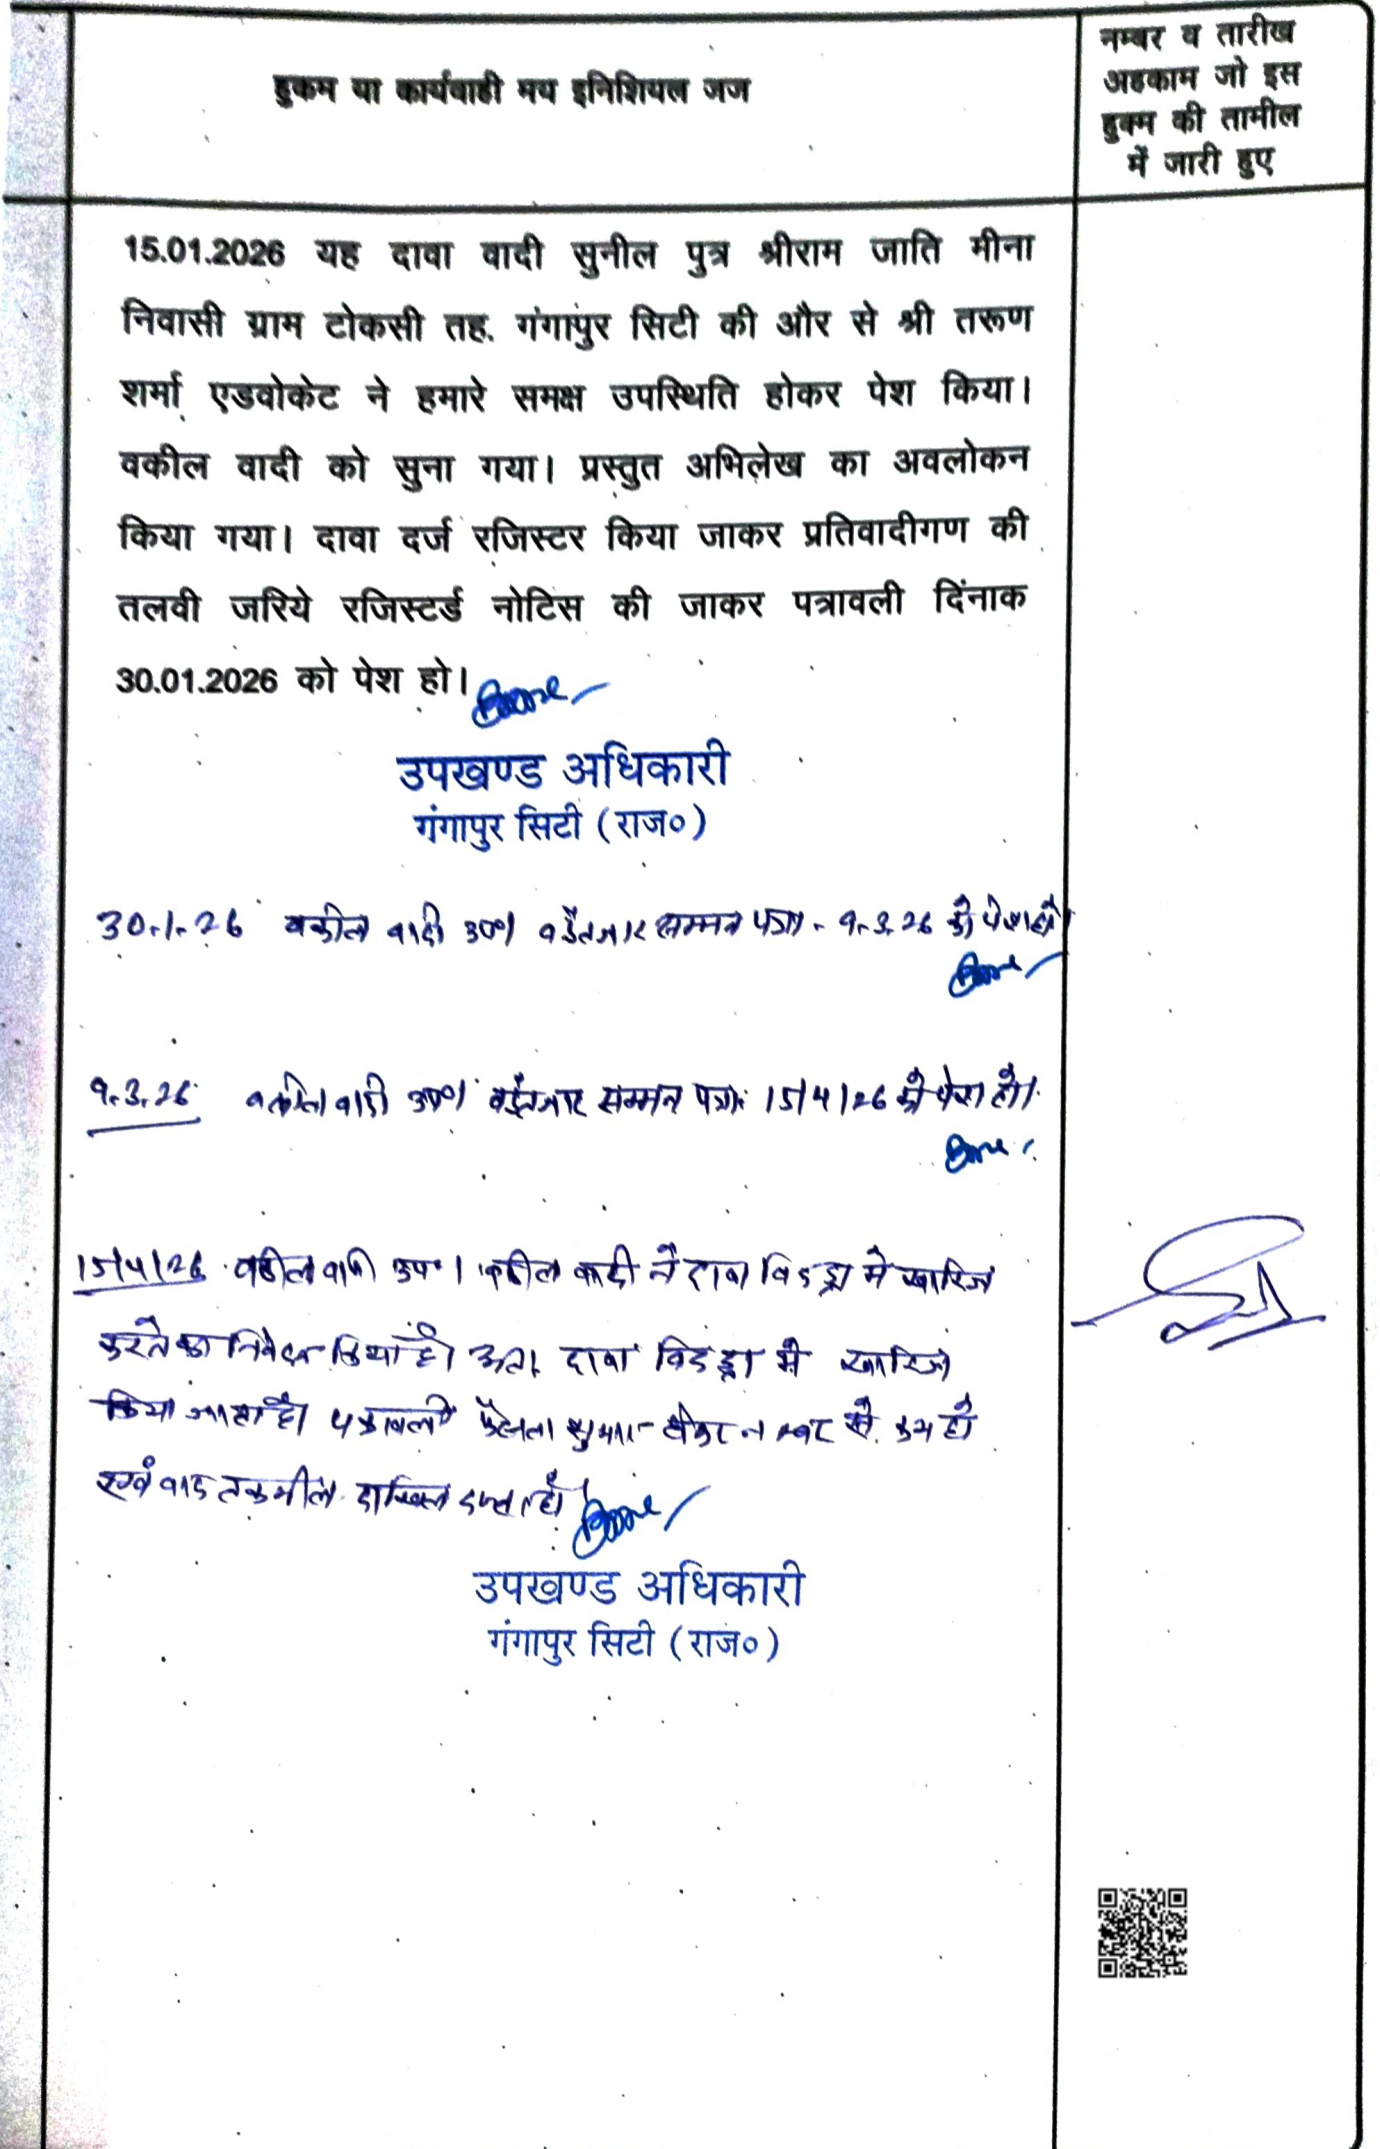 हुकम या कार्यवाही मय इनिशियल जज
नम्बर व तारीख
अहकाम जो इस
हुक्म की तामील
में जारी हुए
15.01.2026 यह दावा वादी सुनील पुत्र श्रीराम जाति मीना
निवासी ग्राम टोकसी तह. गंगापुर सिटी की और से श्री तरूण
शर्मा एडवोकेट ने हमारे समक्ष उपस्थिति होकर पेश किया।
वकील वादी को सुना गया। प्रस्तुत अभिलेख का अवलोकन
किया गया। दावा दर्ज रजिस्टर किया जाकर प्रतिवादीगण की
तलवी जरिये रजिस्टर्ड नोटिस की जाकर पत्रावली दिंनाक
30.01.2026 को पेश हो।
उपखण्ड अधिकारी
गंगापुर सिटी (राज०)
30.1.26 वकील वादी उप० वईंतजार सम्मन पत्रा. 9.3.26 को पेश हो।
9.3.26 वकील वादी उप० वईंतजार सम्मन पत्रा. 15/4/26 को पेश हो।
15/4/26 वकील वादी उप०। वकील वादी ने दावा विडड्रा मे खारिज
करने का निवेदन किया है। अतः दावा विडड्रा मे खारिज
किया जाता है। पत्रावली फैसला शुमार होकर नम्बर से कम हो
एवं बाद तकमील दाखिल दफ्तर हो।
उपखण्ड अधिकारी
गंगापुर सिटी (राज०)